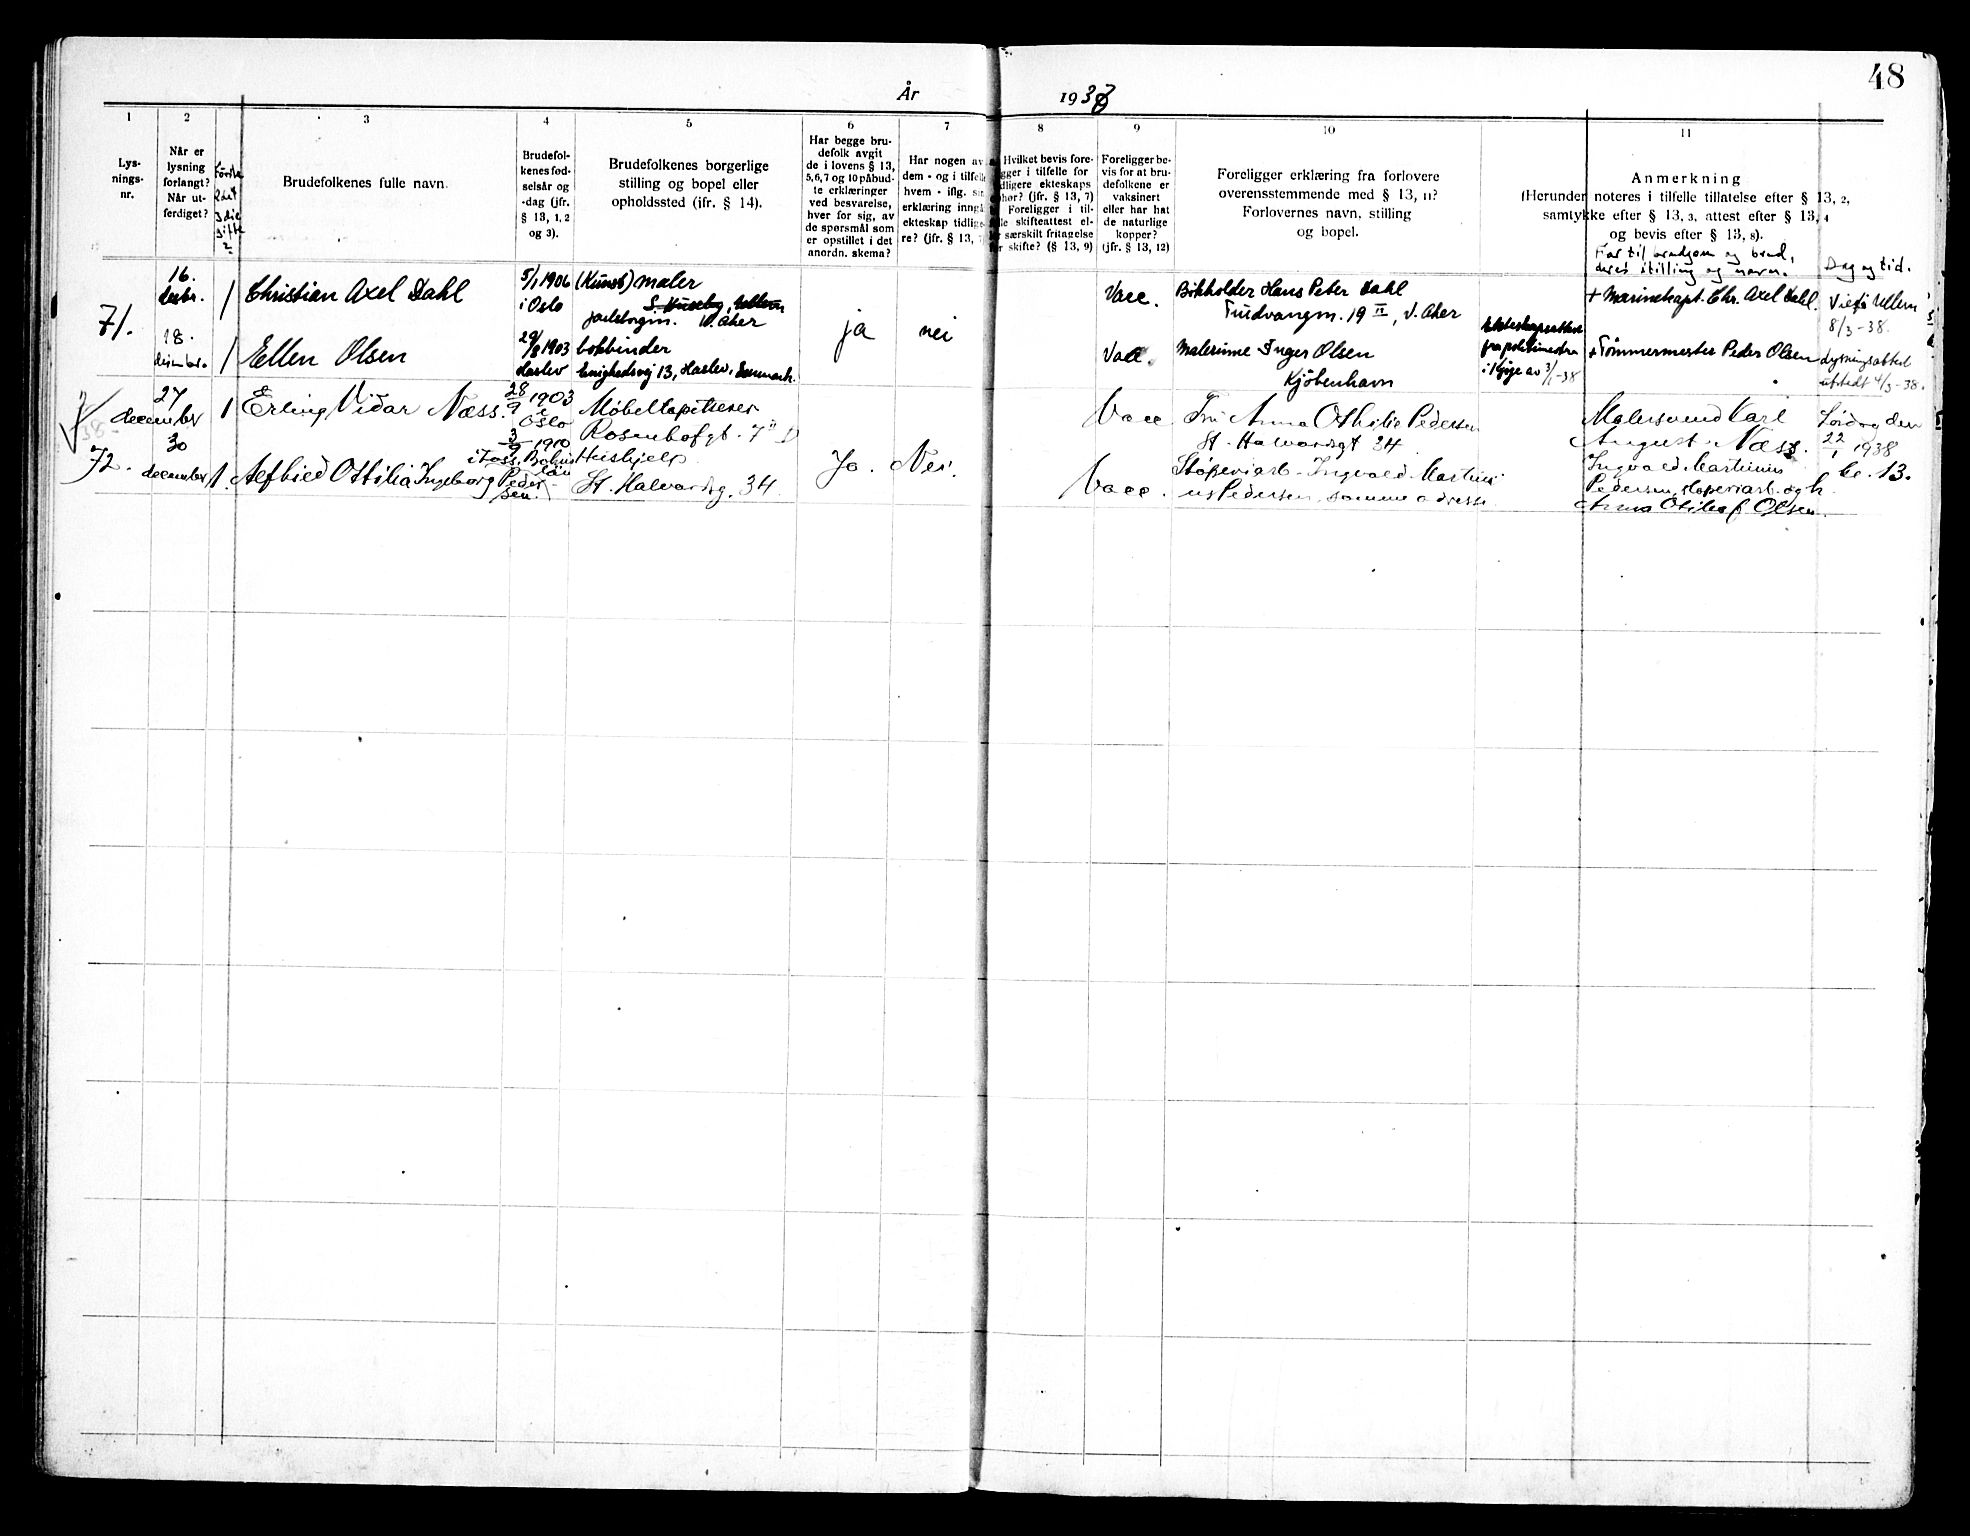 48
År 1937
1
Lys-
nings-
nr.
2
Når er
lysning
forlangt?
Når ut-
ferdiget?
Første
2det
3die
gifte
?
3
Brudefolkenes fulle navn.
4
Brudefol-
kenes fød-
selsår og
-dag (jfr.
§ 13, 1, 2
og 3).
5
Brudefolkenes borgerlige
stilling og bopel eller
opholdssted (ifr. § 14).
6
Har begge bru-
defolk avgit
de i lovens § 13,
5,6,7 og 10 påbud-
te erklæringer
ved besvarelse,
hver for sig, av
de spørsmål som
er opstillet i det
anordn. skema?
7
Har nogen av
dem - og i tilfelle
hvem - iflg. sin
erklæring inngå
ekteskap tidlige-
re? (jfr. § 13, 7
8
Hvilket bevis fore-
gger i tilfelle for
dligere ekteskaps
phør? (jfr. § 13, 7)
Foreligger i til-
lle skifteattest el-
r særskilt fritagelse
r skifte? (§ 13, 9)
9
Foreligger be-
vis for at bru-
defolkene er
vaksinert
eller har hat
de naturlige
kopper?
(jfr. § 13, 12)
10
Foreligger erklæring fra forlovere
overensstemmende med § 13, 11?
Forlovernes navn, stilling
og bopel.
11
Anmerkning
(Herunder noteres i tilfelle tillatelse efter § 13, 2,
samtykke efter § 13, 3, attest efter § 13, 4
og bevis efter § 13, 8).
Far til brudgom og brud,
deres stilling og navn.
Dag og tid.
71.
16.
desbr.
1
Christian Axel Dahl
5/1 1906
i Oslo
(Kunst) maler
S. Huseby, Ullern
Jarlsborgvn. V. Aker
ja
nei
Vacc.
Bokholder Hans Peter Dahl
Trudvangvn. 19 II, V. Aker
+ Marinekapt. Chr. Axel Dahl.
Viet i Ullern
8/3-38.
18.
desembr.
1
Ellen Olsen
29/8 1903
Haslev
bokbinder
Enighedsvej 13, Haslev, Danmark.
Vacc.
Malerinne Inger Olsen
Kjøbenhavn
Ekteskapsattest
fra politimestra
i Kjøge av 3/1-38
+ Tømmermester Peder Olsen
Lysningsattest
utstedt 4/3-38.
72.
27
december
1
Erling Vidar Næss.
28/9 1903
i
Oslo
Møbeltapetserer
Rosenhofgt. 7 II
Vacc.
Fru Anna Othilie Pedersen
St. Halvardsgt 34
Malersvend Karl
August Næss.
Lørdag den
22/1 1938
kl. 13.
30
december
1.
Alfhild Ottilia Ingeborg Peder-
sen.
3/9 1910
i Foss. Bohus
län
Hushjelp
St. Halvardsg. 34
Ja.
Nei.
Vacc.
Støperiarb. Ingvald Martini-
us Pedersen, samme adresse
Ingvald Martinius
Pedersen, støperiarb. og h.
Anna Otilia f. Olsen.